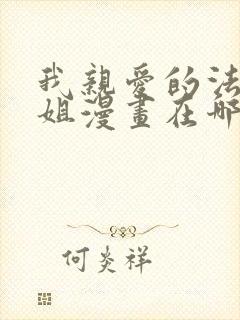 我親愛的法
姐漫畫在哪
何炎祥